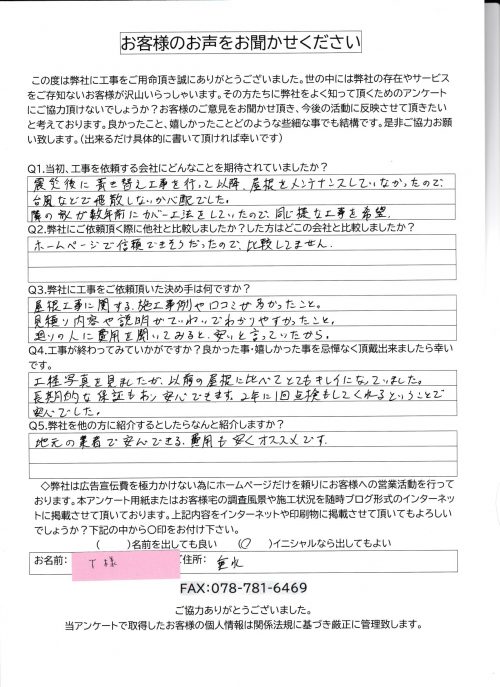 お客様のお声をお聞かせください
この度は弊社に工事をご用命頂き誠にありがとうございました。世の中には弊社の存在やサービス
をご存知ないお客様が沢山いらっしゃいます。その方たちに弊社をよく知って頂くためのアンケート
にご協力頂けないでしょうか？お客様のご意見をお聞かせ頂き、今後の活動に反映させて頂きたい
と考えております。良かったこと、嬉しかったことどのような些細な事でも結構です。是非ご協力お願
い致します。（出来るだけ具体的に書いて頂ければ幸いです）
Q1.当初、工事を依頼する会社にどんなことを期待されていましたか？
震災後に葺き替え工事を行って以降、屋根をメンテナンスしていなかったので、
台風などで飛散しないか心配でした。
隣の家が数年前にカバー工法をしていたので、同じ様な工事を希望。
Q2.弊社にご依頼頂く際に他社と比較しましたか？した方はどこの会社と比較しましたか？
ホームページで信頼できそうだったので、比較してません。
Q3.弊社に工事をご依頼頂いた決め手は何ですか？
屋根工事に関する、施工事例や口コミが多かったこと。
見積り内容や説明がていねいでわかりやすかったこと。
周りの人に費用を聞いてみると、安いと言っていたから。
Q4.工事が終わってみていかがですか？良かった事・嬉しかった事を忌憚なく頂戴出来ましたら幸い
です。
工程写真を見ましたが、以前の屋根に比べてとてもキレイになっていました。
長期的な保証もあり安心できます。2年に1回点検もしてくれるということで
安心でした。
Q5.弊社を他の方に紹介するとしたらなんと紹介しますか？
地元の業者で安心できる。費用も安くオススメです。
◇弊社は広告宣伝費を極力かけない為にホームページだけを頼りにお客様への営業活動を行って
おります。本アンケート用紙またはお客様宅の調査風景や施工状況を随時ブログ形式のインターネッ
トに掲載させて頂いております。上記内容をインターネットや印刷物に掲載させて頂いてもよろしい
でしょうか？下記の中から〇印をお付け下さい。
（　　）名前を出しても良い　（〇）イニシャルなら出してもよい
お名前： T様 ご住所： 垂水
FAX：078-781-6469
ご協力ありがとうございました。
当アンケートで取得したお客様の個人情報は関係法規に基づき厳正に管理致します。